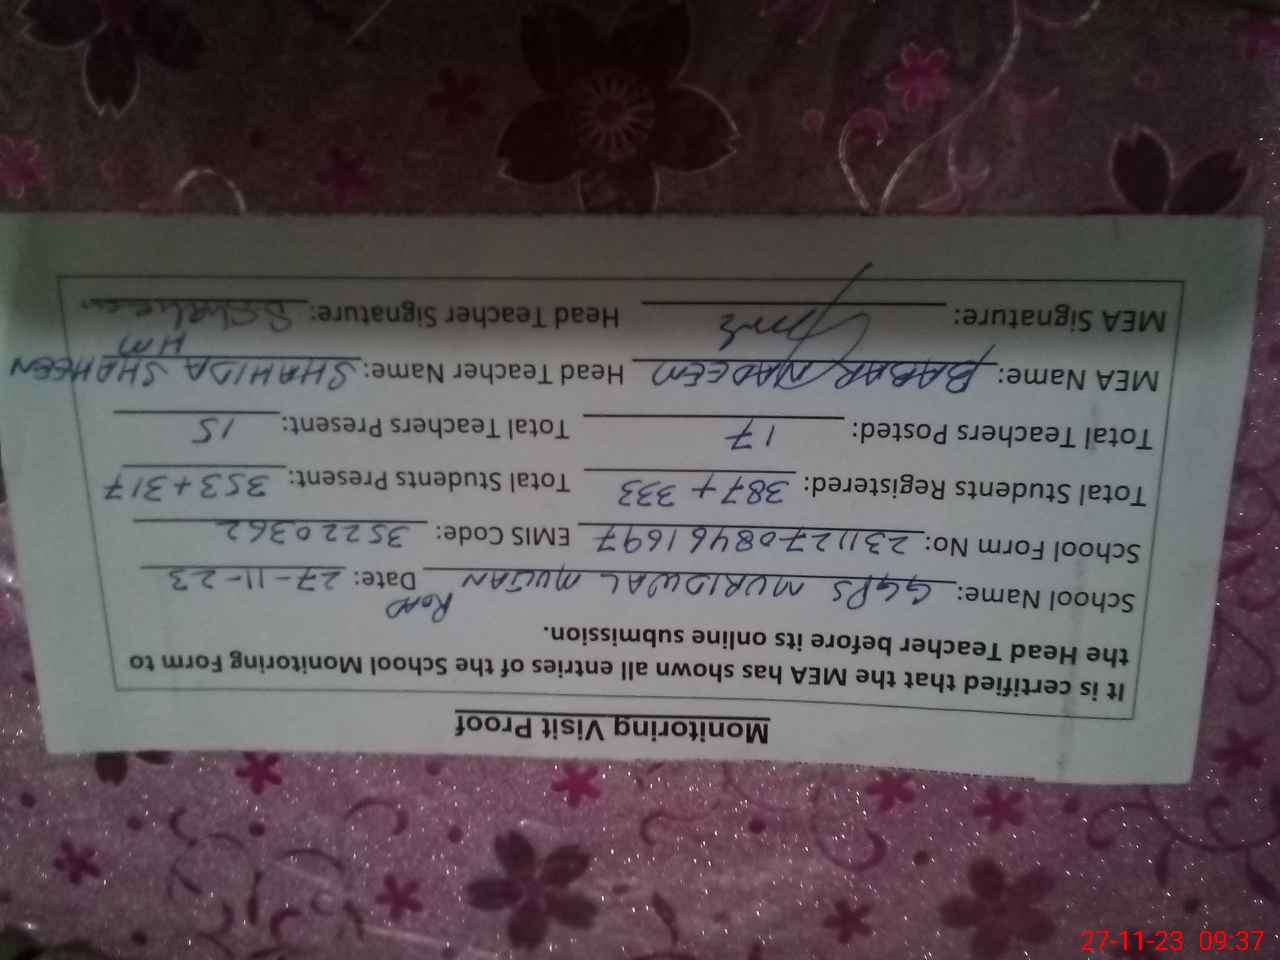 Monitoring Visit Proof
It is certified that the MEA has shown all entries of the School Monitoring Form to
the Head Teacher before its online submission.
School Name: GGPS MURIDWAL MULTAN ROAD Date: 27-11-23
School Form No: 23112708461697 EMIS Code: 35220362
Total Students Registered: 387+333 Total Students Present: 353+317
Total Teachers Posted: 17 Total Teachers Present: 15
MEA Name: BABAR NADEEM Head Teacher Name: SHAHIDA SHAHEEN
HM
MEA Signature: Head Teacher Signature: S.Shaheen
27-11-23 09:37